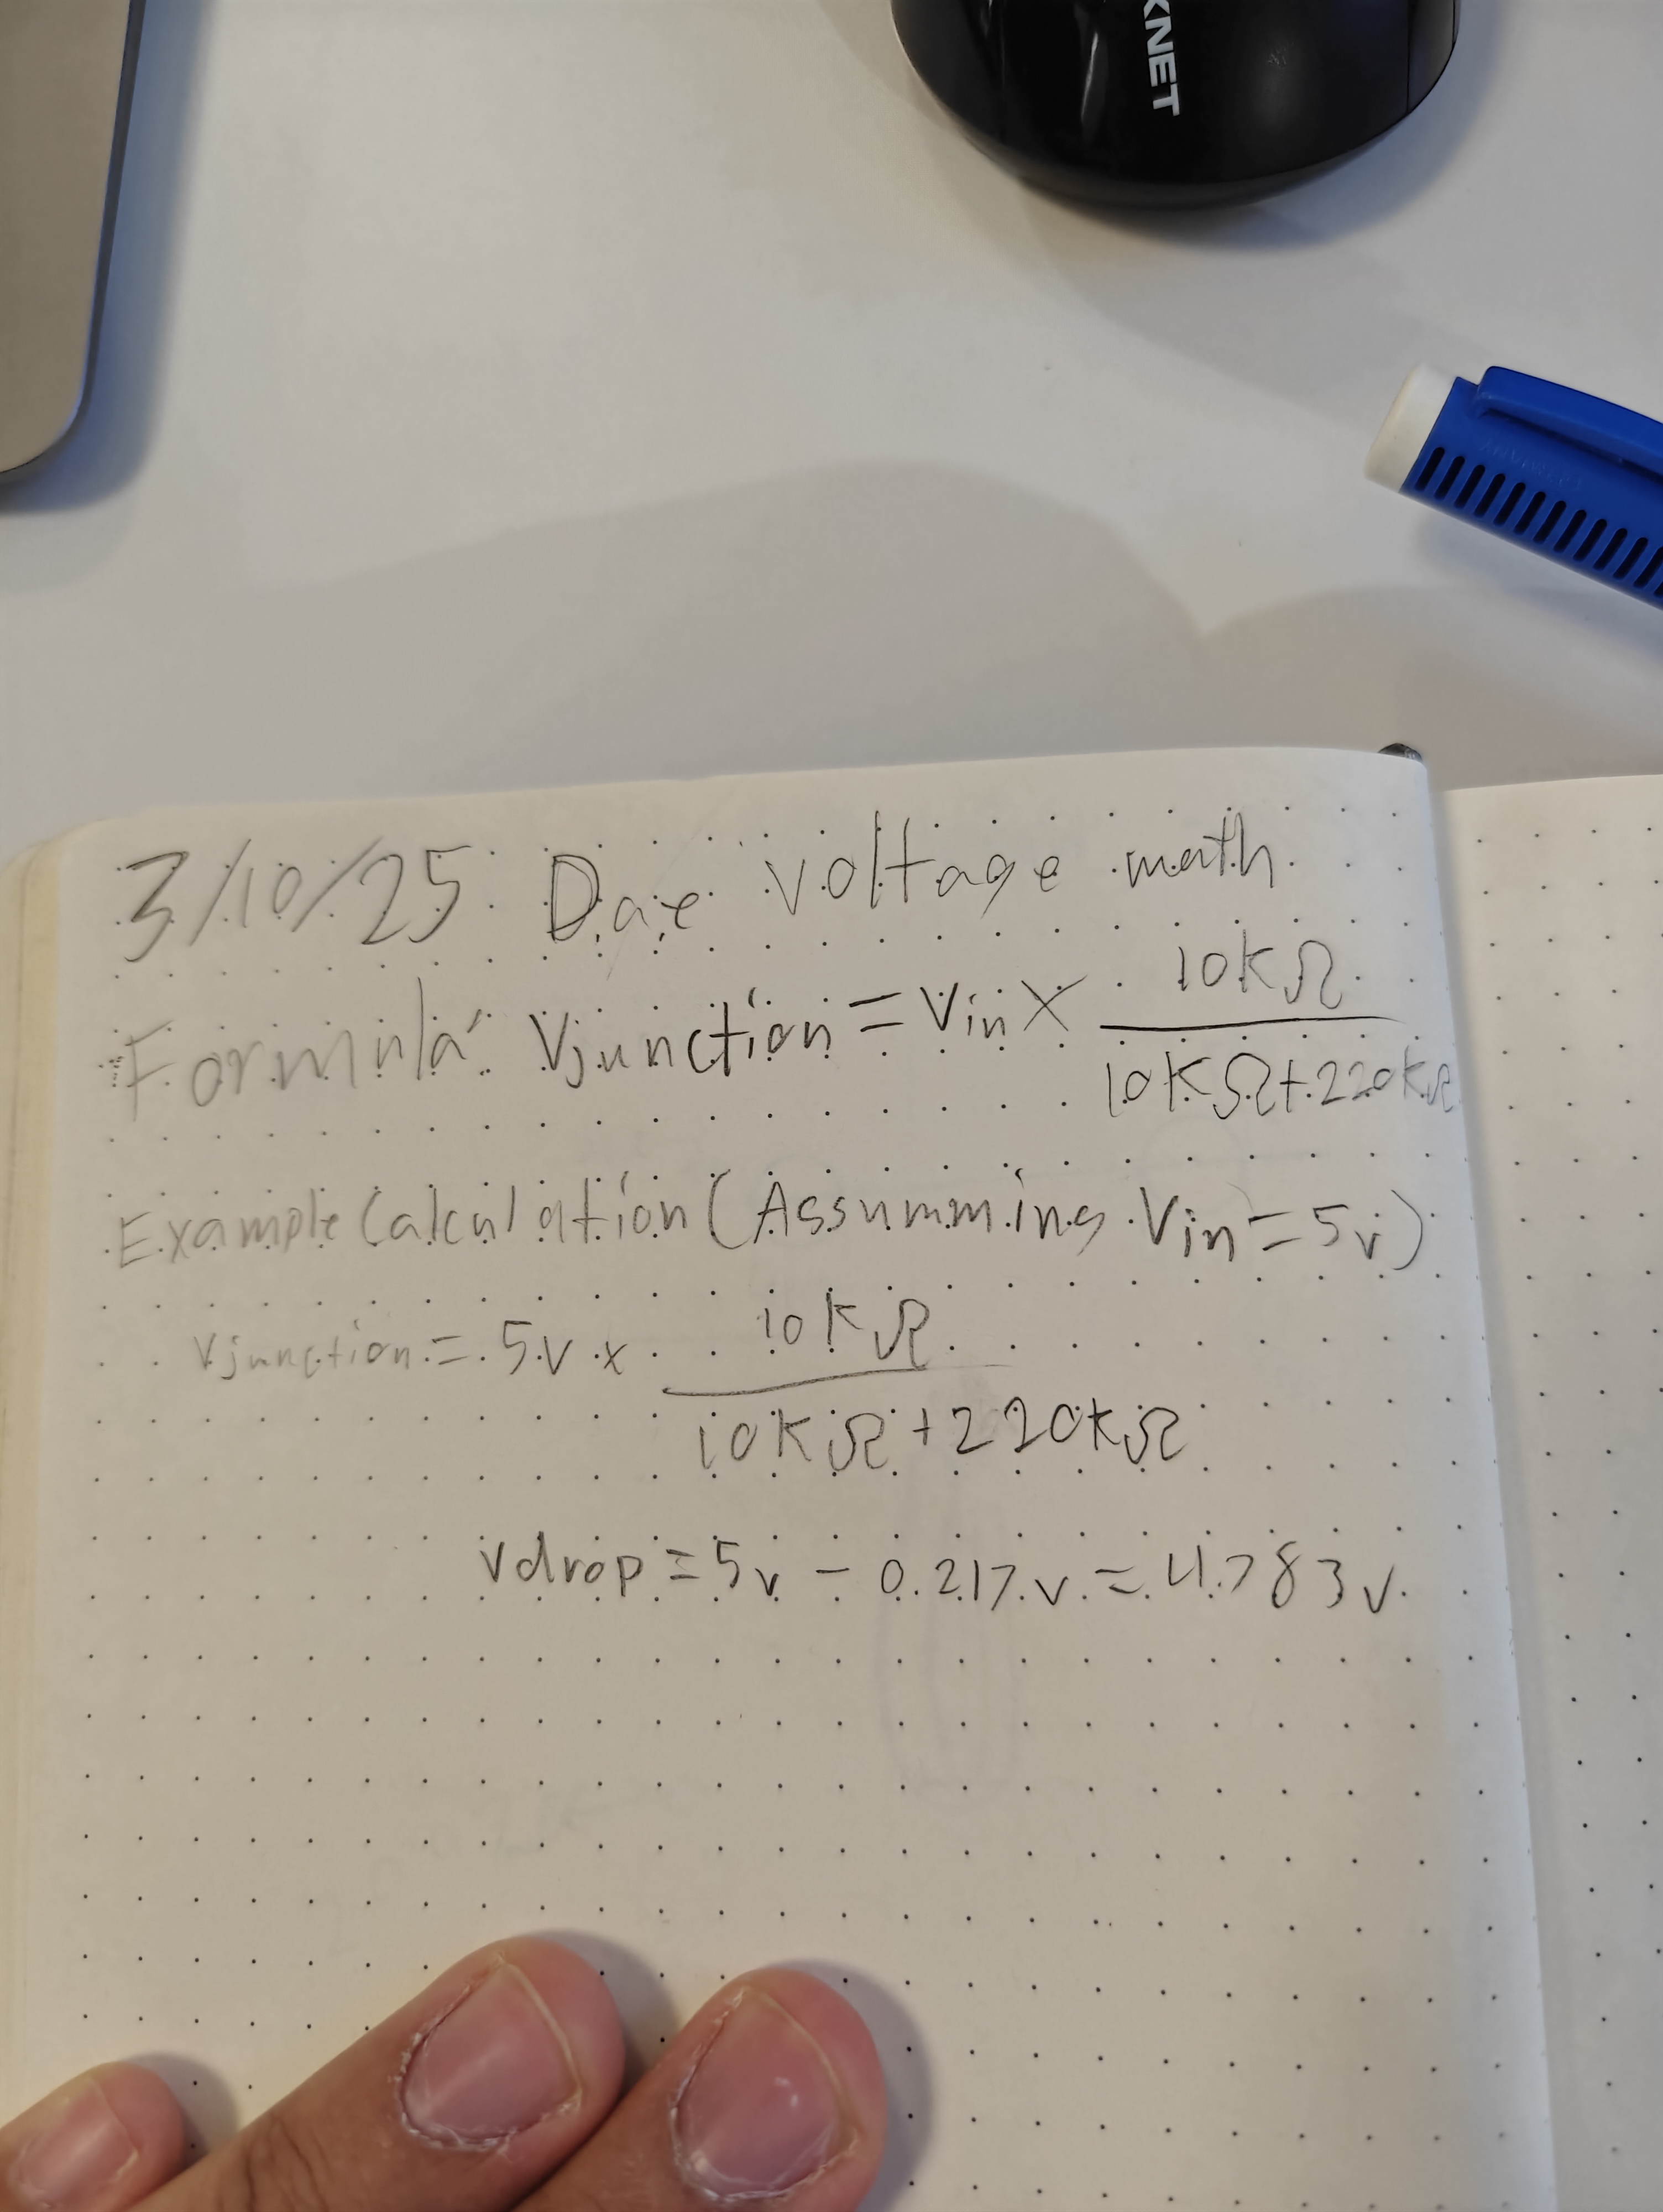 KNET
3/10/25 Dae voltage math
Formula: Vjunction = Vin × 10KΩ / 10KΩ + 220KΩ
Example Calculation (Assumming Vin = 5v)
Vjunction = 5v × 10KΩ / 10KΩ + 220KΩ
Vdrop = 5v - 0.217v = 4.783v